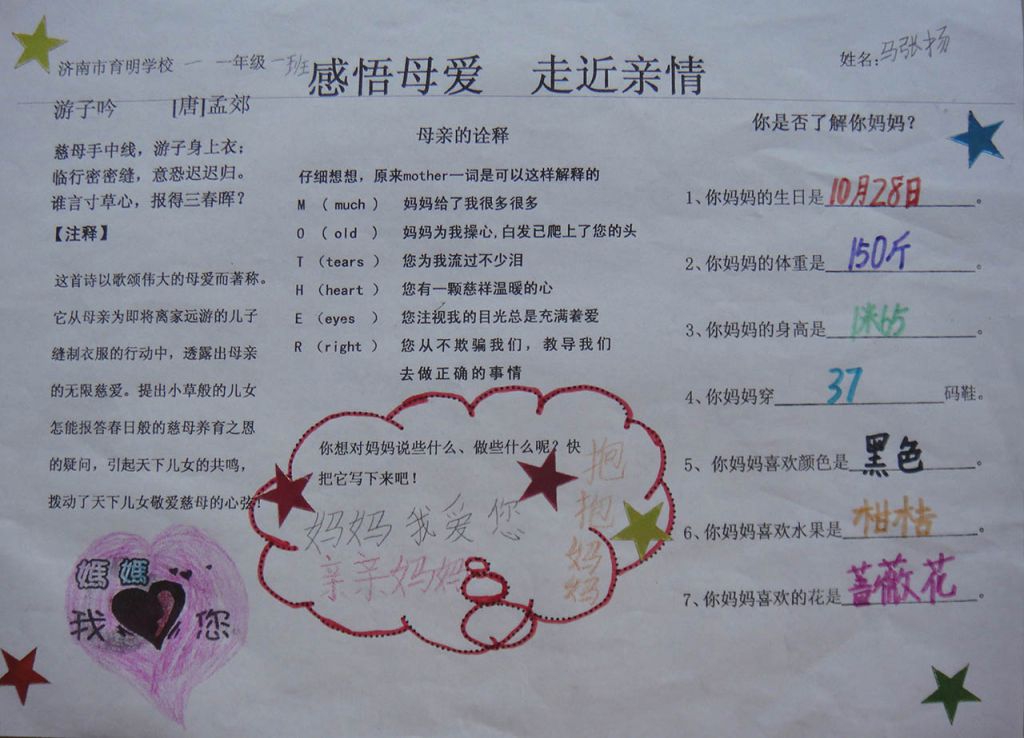 济南市育明学校 一 一年级一班
感悟母爱 走近亲情
姓名:马张扬
游子吟 [唐]孟郊
慈母手中线，游子身上衣；
临行密密缝，意恐迟迟归。
谁言寸草心，报得三春晖？
【注释】
这首诗以歌颂伟大的母爱而著称。
它从母亲为即将离家远游的儿子
缝制衣服的行动中，透露出母亲
的无限慈爱。提出小草般的儿女
怎能报答春日般的慈母养育之恩
的疑问，引起天下儿女的共鸣，
拨动了天下儿女敬爱慈母的心弦!
媽媽
我 您
母亲的诠释
仔细想想，原来mother一词是可以这样解释的
M （much） 妈妈给了我很多很多
O （old） 妈妈为我操心,白发已爬上了您的头
T （tears） 您为我流过不少泪
H （heart） 您有一颗慈祥温暖的心
E （eyes） 您注视我的目光总是充满着爱
R （right） 您从不欺骗我们，教导我们
去做正确的事情
你想对妈妈说些什么、做些什么呢？快
把它写下来吧！
妈妈我爱您
亲亲妈妈
抱抱妈妈
你是否了解你妈妈？
1、你妈妈的生日是10月28日。
2、你妈妈的体重是150斤。
3、你妈妈的身高是1米65。
4、你妈妈穿37码鞋。
5、你妈妈喜欢颜色是黑色。
6、你妈妈喜欢水果是柑桔。
7、你妈妈喜欢的花是蔷薇花。